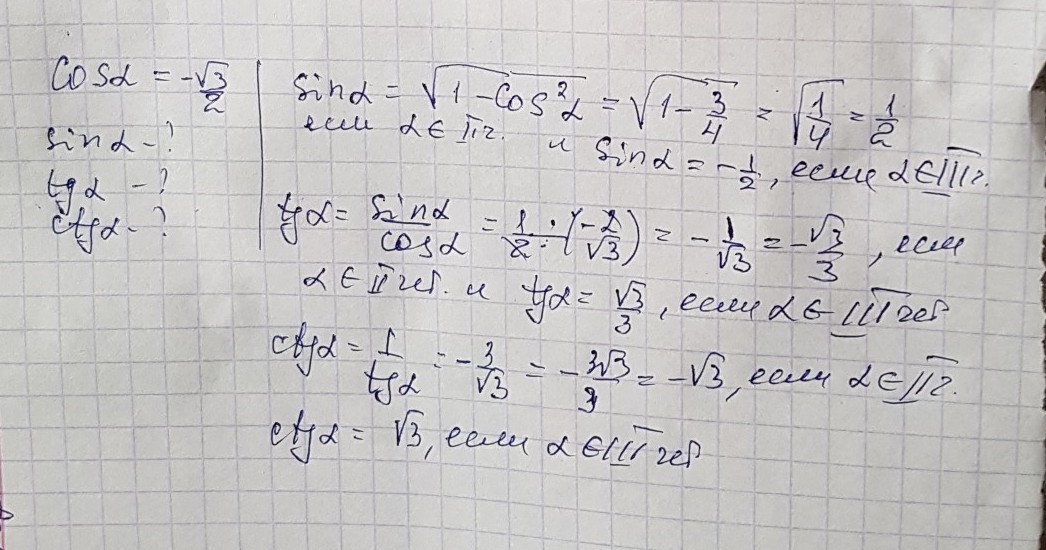 cosα = -√3/2
sinα -?
tgα -?
ctgα -?
sinα = √(1-cos²α) = √(1-3/4) = √(1/4) = 1/2
если α ∈ II г. и sinα = -1/2, если α ∈ III г.
tgα = sinα/cosα = 1/2 · (-2/√3) = -1/√3 = -√3/3, если
α ∈ II чет. и tgα = √3/3, если α ∈ III чет
ctgα = 1/tgα = -3/√3 = -3√3/3 = -√3, если α ∈ II г.
ctgα = √3, если α ∈ III чет